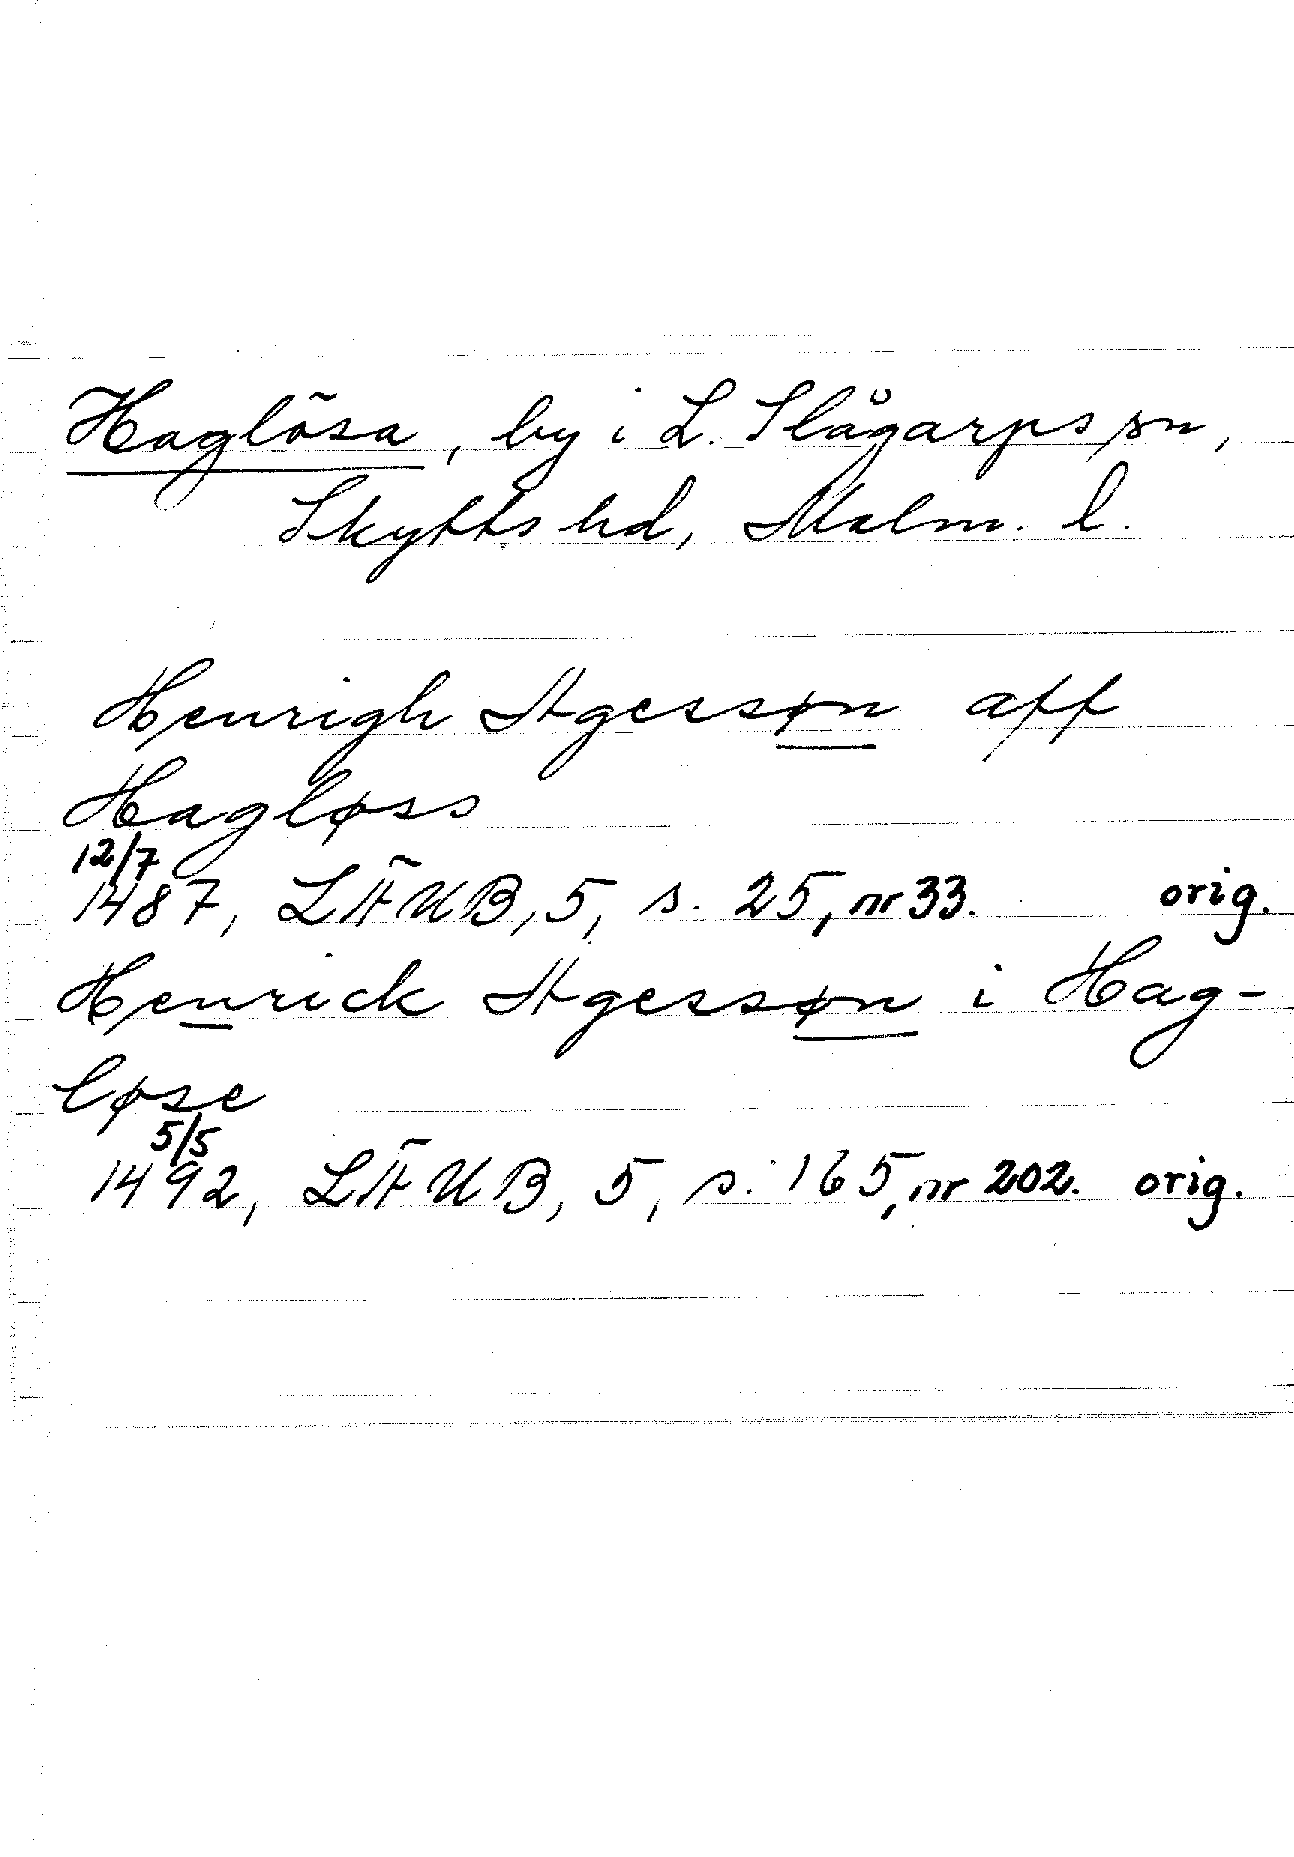 Haglösa, by i L. Slågarps sn,
Skytts hd, Malm. l.
Henrigh Agessøn aff
Hagløss
12/7
1487, LÄUB, 5, s. 25, nr 33. orig.
Henrick Agessøn i Hag-
løse
5/5
1492, LÄUB, 5, s. 165, nr 202. orig.